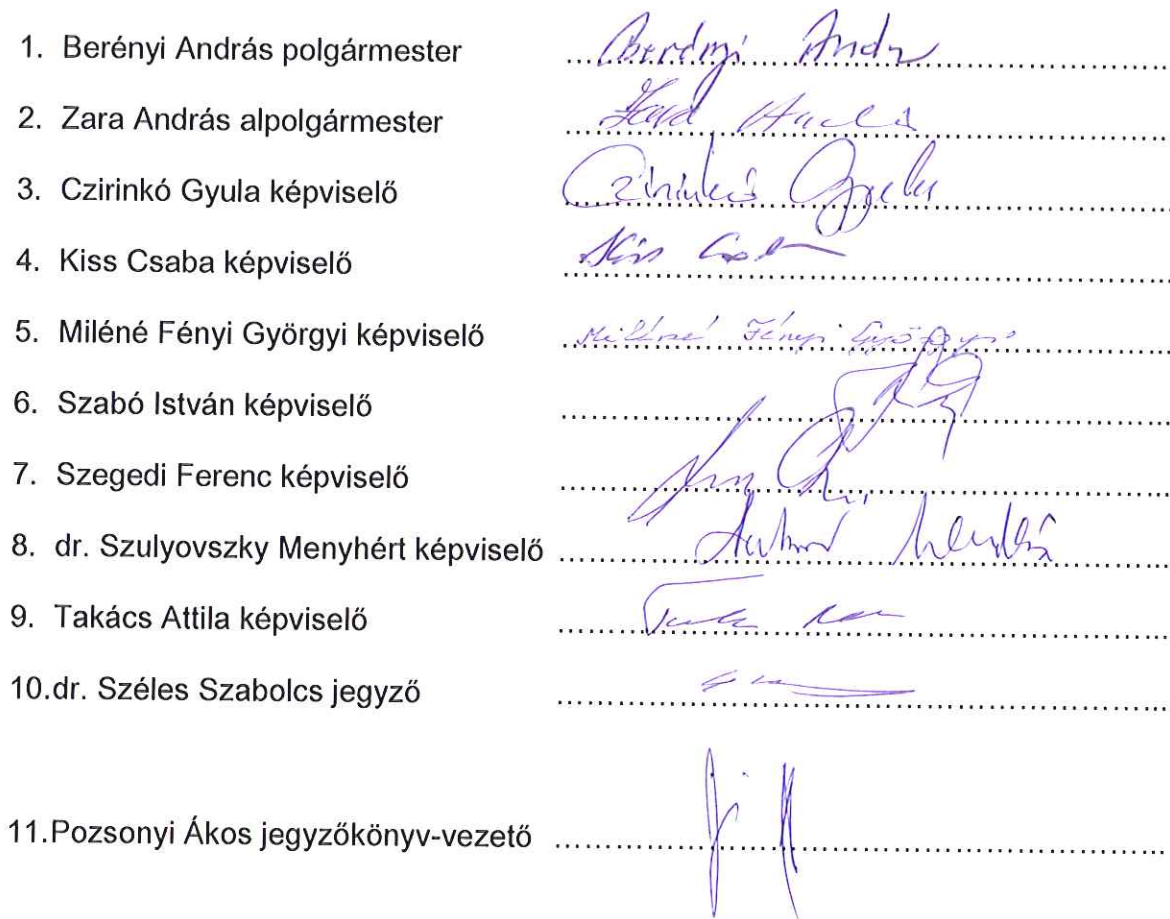 1. Berényi András polgármester ........ Berényi Andr
2. Zara András alpolgármester ........
3. Czirinkó Gyula képviselő ........ Czirinkó Gyula
4. Kiss Csaba képviselő ........ Kiss Csaba
5. Miléné Fényi Györgyi képviselő ........ Miléné Fényi Györgyi
6. Szabó István képviselő ........
7. Szegedi Ferenc képviselő ........
8. dr. Szulyovszky Menyhért képviselő ........
9. Takács Attila képviselő ........
10.dr. Széles Szabolcs jegyző ........
11.Pozsonyi Ákos jegyzőkönyv-vezető ........